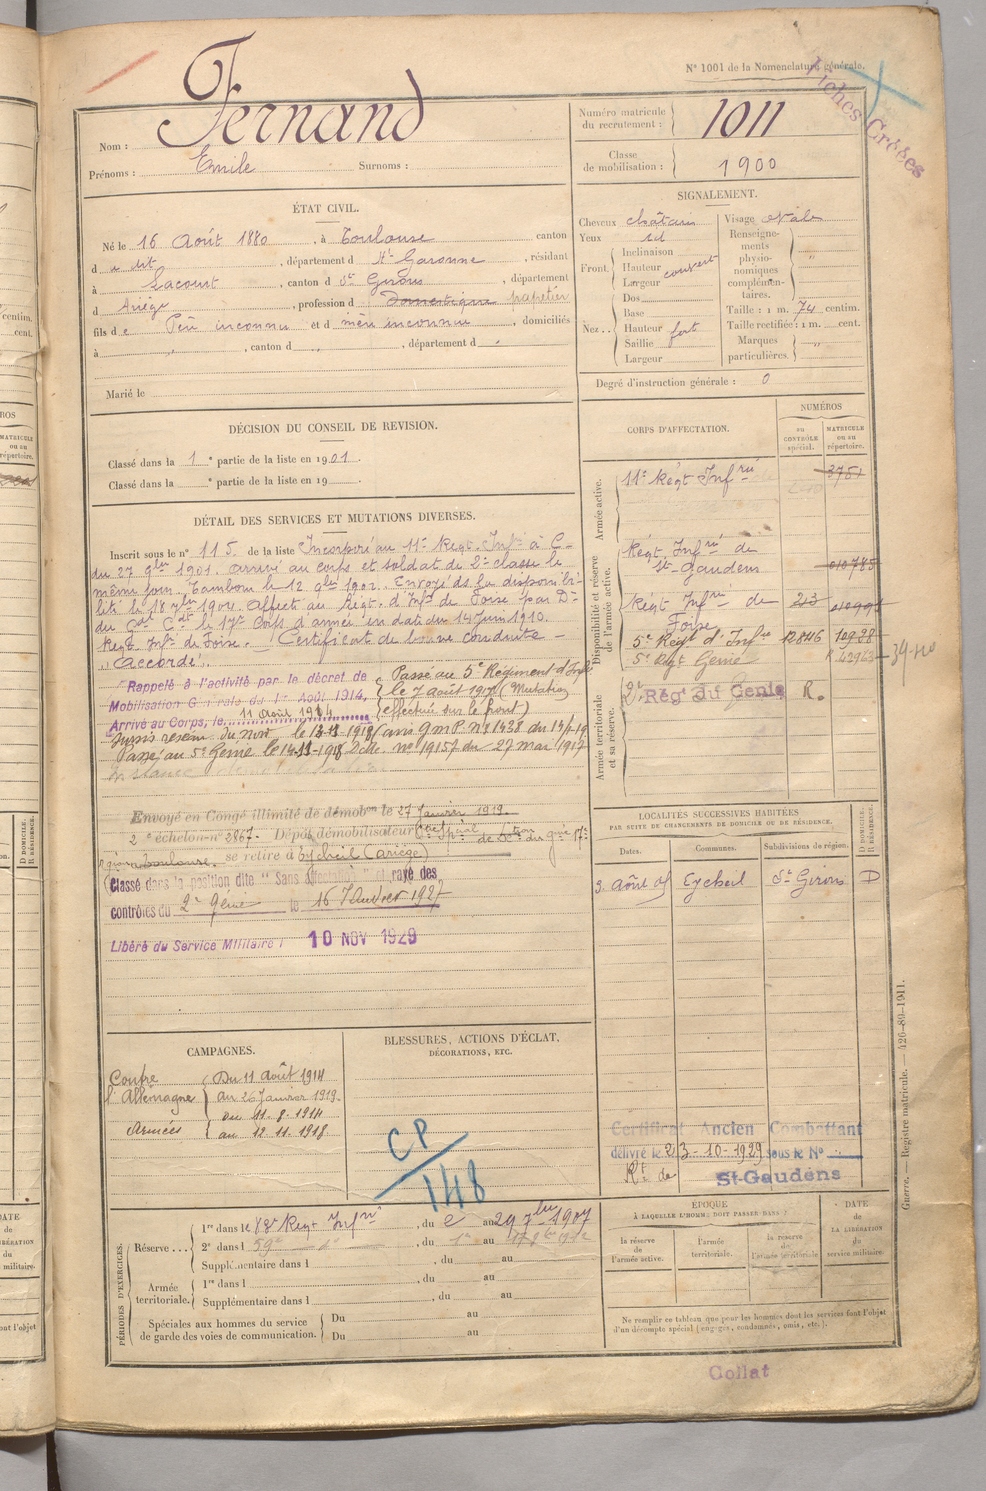 N° 1001 de la Nomenclature générale.
Fiches Créées
Nom : Fernand
Prénoms : Emile Surnoms :
Numéro matricule du recrutement : 1011
Classe de mobilisation : 1900
ÉTAT CIVIL.
Né le 16 Août 1880, à Toulouse canton
d u dit, département d Hte Garonne, résidant
à Lacourt, canton d St Girons, département
d Ariège, profession d Domestique papetier
fils d e Père inconnu et d mère inconnue, domiciliés
à , canton d , département d
Marié le
SIGNALEMENT.
Cheveux châtain
Yeux id
Front. Inclinaison
Hauteur couvert
Largeur
Nez.. Dos
Base
Hauteur fort
Saillie
Largeur
Visage ovale
Renseignements physionomiques complémentaires.
Taille : 1 m. 74 centim.
Taille rectifiée : 1 m. cent.
Marques particulières.
Degré d'instruction générale : 0
DÉCISION DU CONSEIL DE REVISION.
Classé dans la 1 e partie de la liste en 1901.
Classé dans la e partie de la liste en 19
DÉTAIL DES SERVICES ET MUTATIONS DIVERSES.
Inscrit sous le n° 115 de la liste Incorporé au 11e Régt. Infie à C-
du 27 9bre 1901. arrivé au corps et soldat de 2e classe le
même jour. Tambour le 12 9bre 1902. Envoyé ds la disponibi-
lité le 18 7bre 1904. Affect au Régt. d'Infie de Foise par Don
du Gal Cdt le 17e Corps d'armée en date du 14 Juin 1910.
Régt Infie de Foise. Certificat de bonne conduite
"Accordé".
Rappelé à l'activité par le décret de
Mobilisation Générale du 1er Août 1914,
Arrivé au Corps, le 11 août 1914
Passé au 5e Régiment d'Infie
le 7 août 1917 (Mutation
effectuée sur le front)
Passé au 5e Génie le 14-11-1918 n° 19157 du 27 mai 1917
Envoyé en Congé illimité de démobon le 27 Janvier 1919.
2e échelon n° 2867. Dépôt démobilisateur
région Toulouse. se retire à Eycheil (Ariège)
Classé dans la position dite "Sans affectation" et rayé des
contrôles du 2e Génie le 16 Janvier 1927
Libéré du Service Militaire l 10 NOV 1929
CORPS D'AFFECTATION.
NUMÉROS
au CONTRÔLE spécial.
MATRICULE ou au répertoire.
Armée active.
11e Régt Infrie 3751
Disponibilité et réserve de l'armée active.
Régt Infrie de St-Gaudens 010785
Régt Infrie de Foise 213
5e Régt d'Infrie 12846 10928
5e Régt Génie
Armée territoriale et sa réserve.
2e Rég' du Génie R.
LOCALITÉS SUCCESSIVES HABITÉES
PAR SUITE DE CHANGEMENTS DE DOMICILE OU DE RÉSIDENCE.
Dates. Communes. Subdivisions de région. D DOMICILE. R RÉSIDENCE.
3. Août 05 Eycheil St Girons D
CAMPAGNES.
Contre l'Allemagne
Du 11 Août 1914
au 26 Janvier 1919.
Armées
du 11. 8. 1914
au 12. 11. 1918.
BLESSURES, ACTIONS D'ÉCLAT,
DÉCORATIONS, ETC.
CP
148
Certificat Ancien Combattant
délivré le 23-10-1929 sous le N°
Rt de St-Gaudens
PÉRIODES D'EXERCICES.
Réserve...
1re dans le 88e Régt Infie, du 2 au 29 7bre 1907
2e dans l 59e, du 1er au
Supplémentaire dans l , du au
Armée territoriale.
1re dans l , du au
Supplémentaire dans l , du au
Spéciales aux hommes du service de garde des voies de communication.
Du au
Du au
ÉPOQUE
À LAQUELLE L'HOMME DOIT PASSER DANS :
la réserve de l'armée active.
l'armée territoriale.
la réserve de l'armée territoriale
DATE de LA LIBÉRATION du service militaire.
Ne remplir ce tableau que pour les hommes dont les services font l'objet
d'un décompte spécial (engagés, condamnés, omis, etc.).
Guerre. — Registre matricule. — 426-89-1911.
Collat